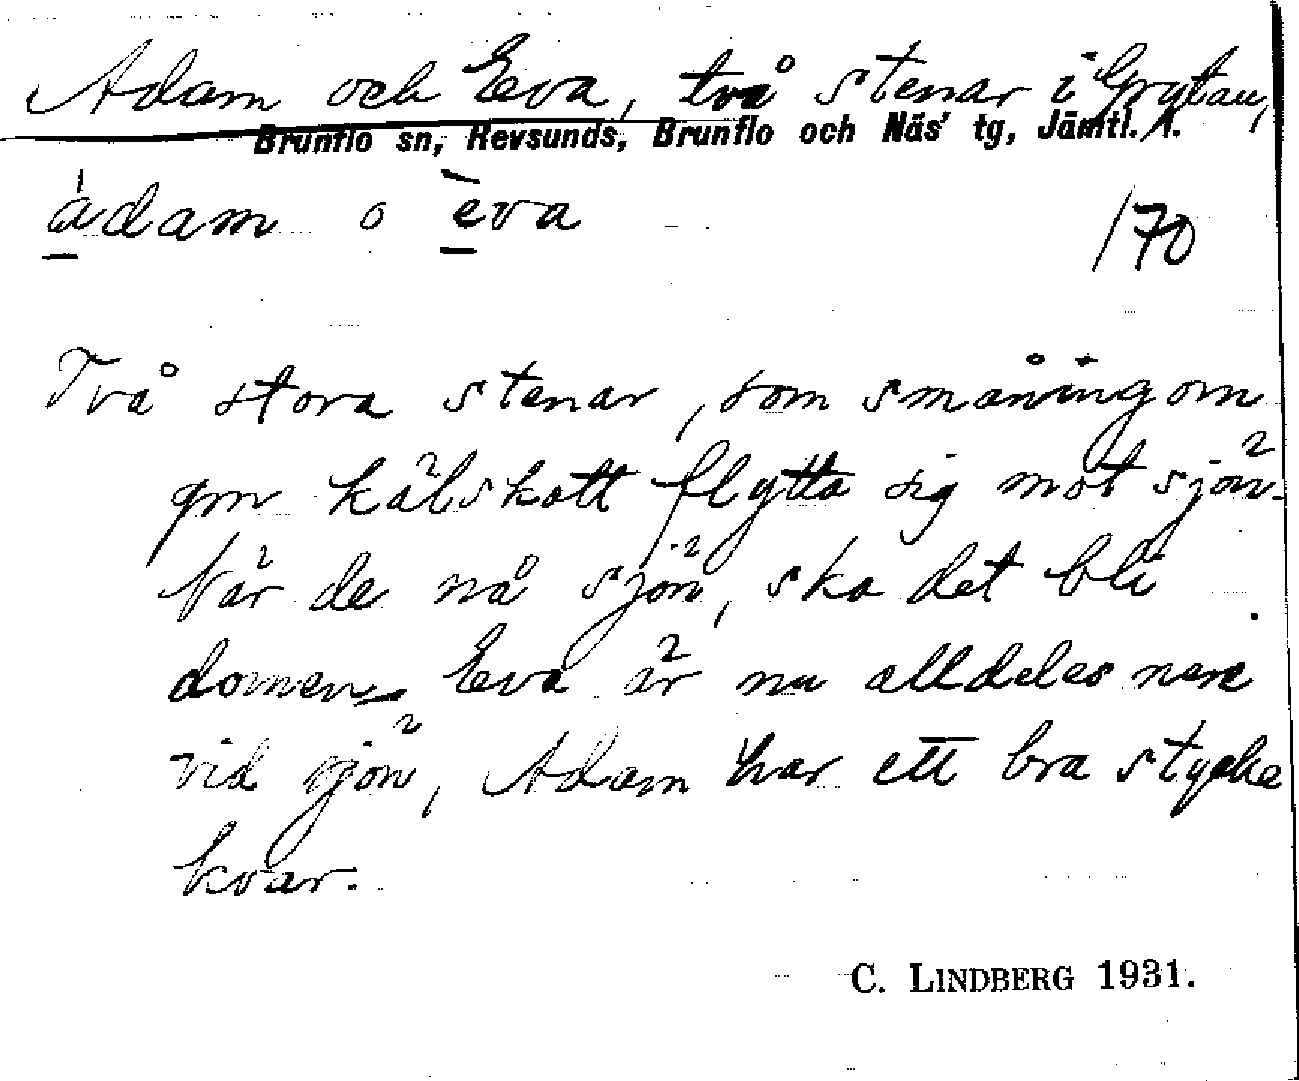 Adam och Eva, två stenar i Grytan,
Brunflo sn, Revsunds, Brunflo och Näs' tg, Jämtl. l.
àdam o èva
170
Två stora stenar, som småningom
gm kälskott flytta sig mot sjön.
När de nå sjön, ska det bli
domen. Eva är nu alldeles nere
vid sjön, Adam har ett bra stycke
kvar.
C. LINDBERG 1931.